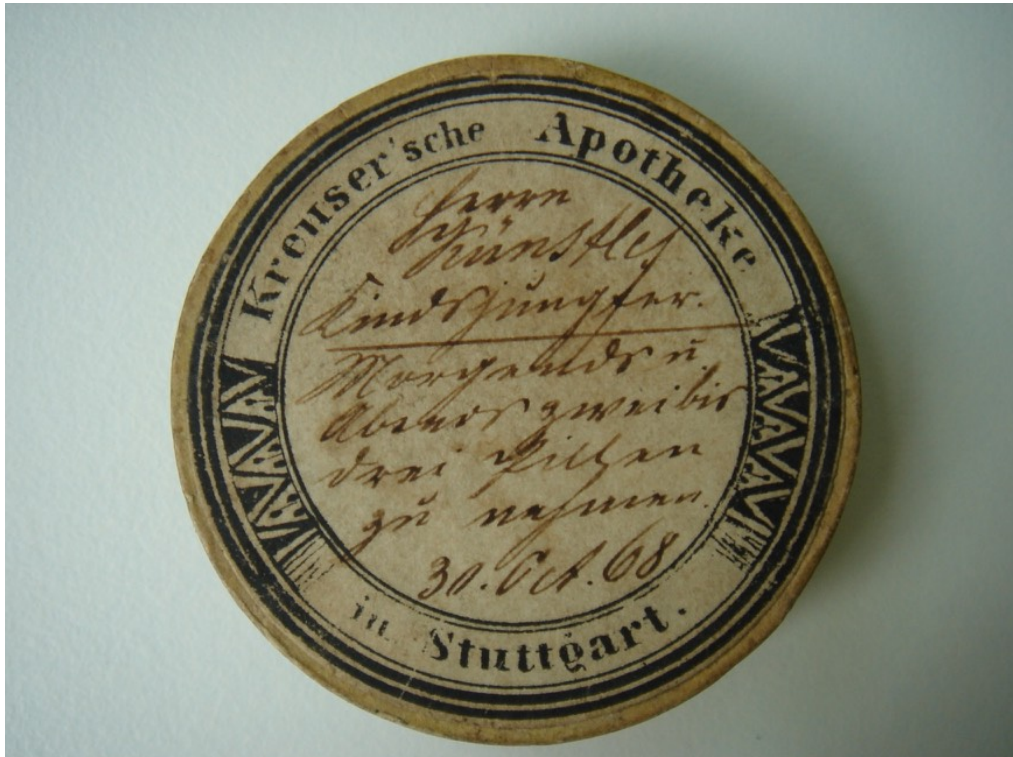 Kreuser'sche Apotheke
Herrn
Künstles
Kindsjungfer.
Morgends u
Abends zwei bis
drei Pillen
zu nehmen.
30. Oct. 68
in Stuttgart.